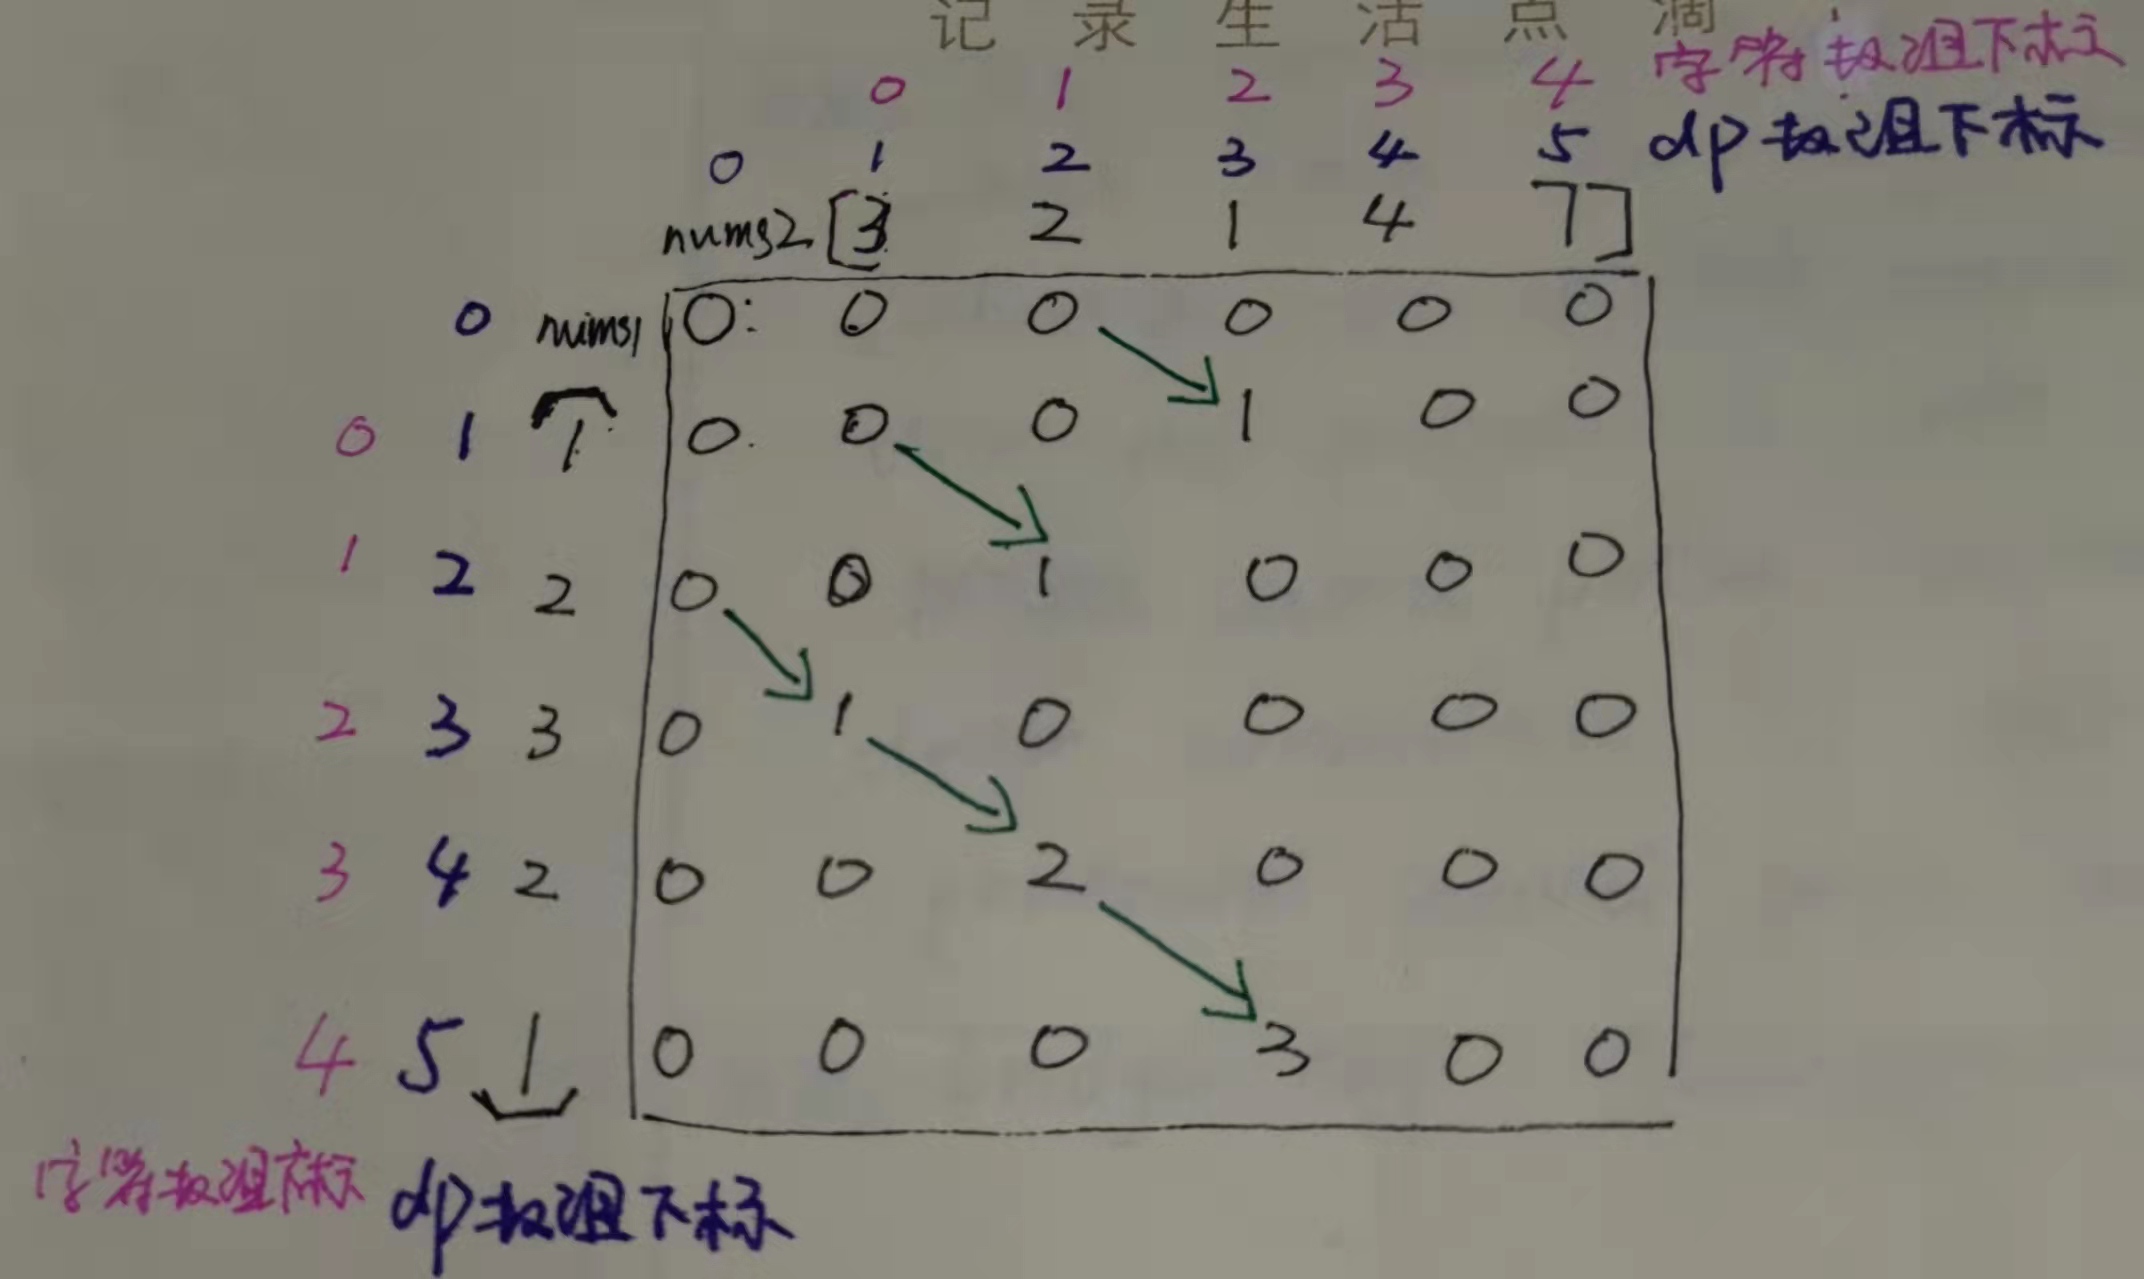 记录生活点滴
0 1 2 3 4 字符数组下标
0 1 2 3 4 5 dp数组下标
nums2 [3 2 1 4 7]
0 nums1 0 0 0 0 0 0
0 1 1 0 0 0 1 0 0
1 2 2 0 0 1 0 0 0
2 3 3 0 1 0 0 0 0
3 4 2 0 0 2 0 0 0
4 5 1 0 0 0 3 0 0
字符数组下标 dp数组下标